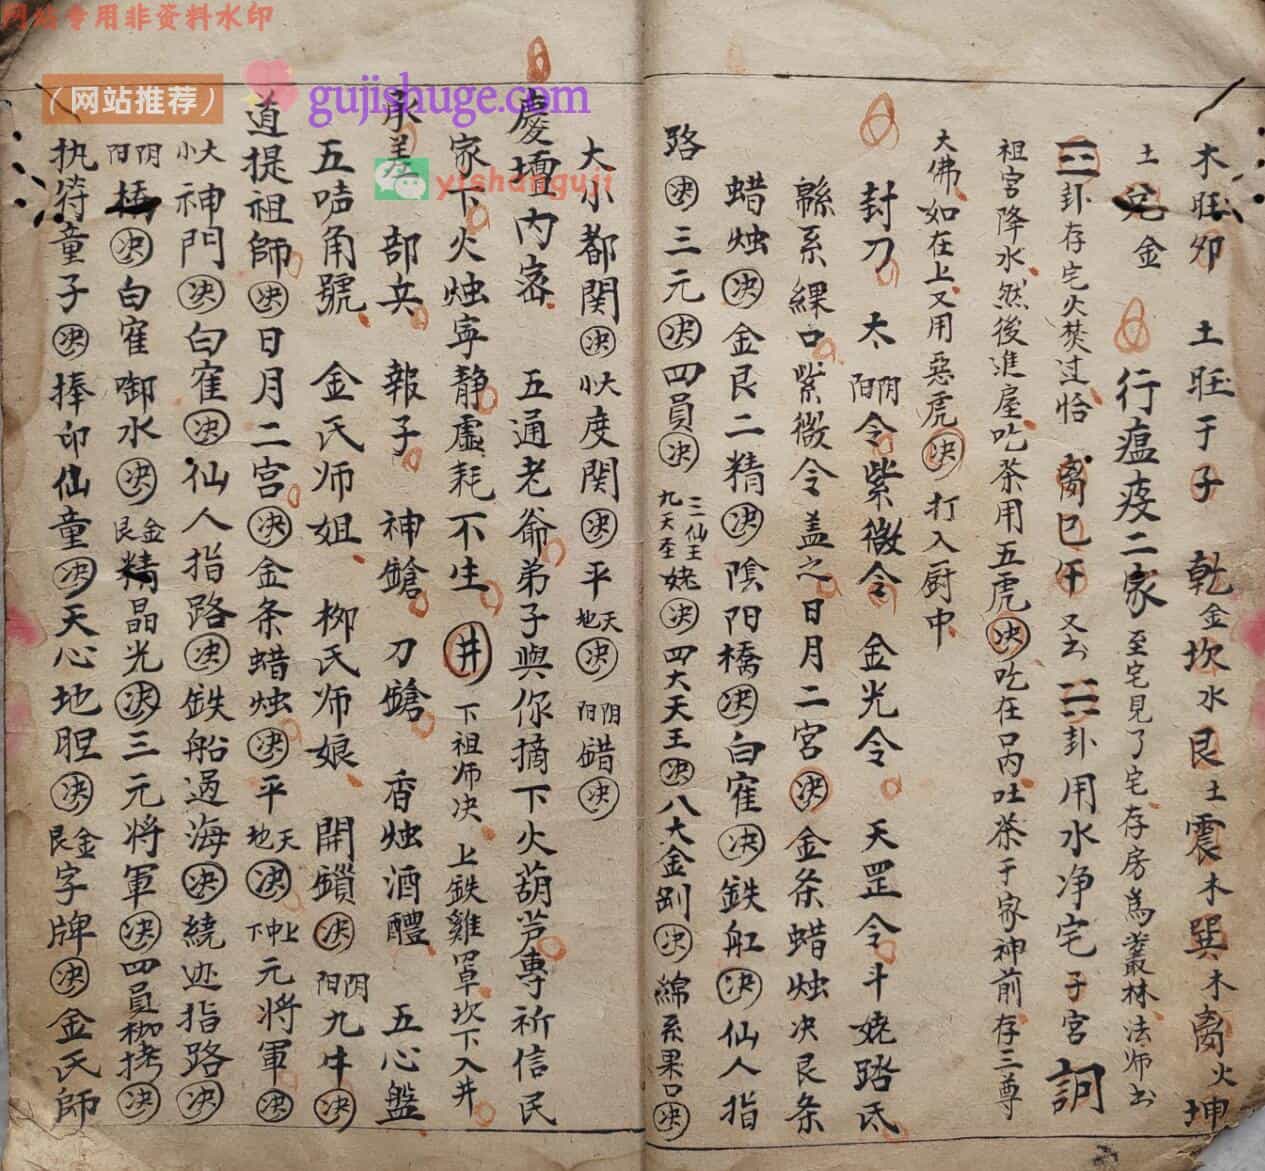 网站专用非资料水印
（网站推荐）
gujishuge.com
yishanguji
木旺卯 土旺于子 乾金坎水艮土震木巽木离火坤
土 兑金 行瘟疫二家 至宅見了宅存房為叢林法师出
卦存宅火焚过恰 离巳午又出 卦用水净宅子宫
祖宫降水然後進屋吃茶用五虎决吃在口內吐茶于家神前存三尊
大佛如在上又用惡虎决打入厨中
封刀 太阴阳令紫微令 金光令 天罡令斗姥踏氏
緜系綶口紫微令盖之日月二宫决金条蜡烛决艮条
蜡烛决金艮二精决陰阳橋决白寉决鉄舡决仙人指
路决三元决四員决三仙王九天圣姥决四大天王决八大金剛决綿系果口决
大小都関决大小度関决平天地决 阴阳錯决
慶壇内密 五通老爺弟子與你摘下火葫芦專祈信民
家下火烛寜静虛耗不生 井 下祖师决 上鉄雞罩坎下入井
承差 部兵 報子 神鎗 刀鎗 香烛酒醴 五心盤
五咭角號 金氏师姐 柳氏师娘 開鎖决 阴阳九牛决
道提祖師决日月二宫决金条蜡烛决平天地决上中下元将軍决
大小神門决白寉决仙人指路决鉄船過海决繞迹指路决
阴阳橋决白寉啣水决金艮精晶光决三元将軍决四員枷拷决
执符童子决捧印仙童决天心地胆决金艮字牌决金氏師